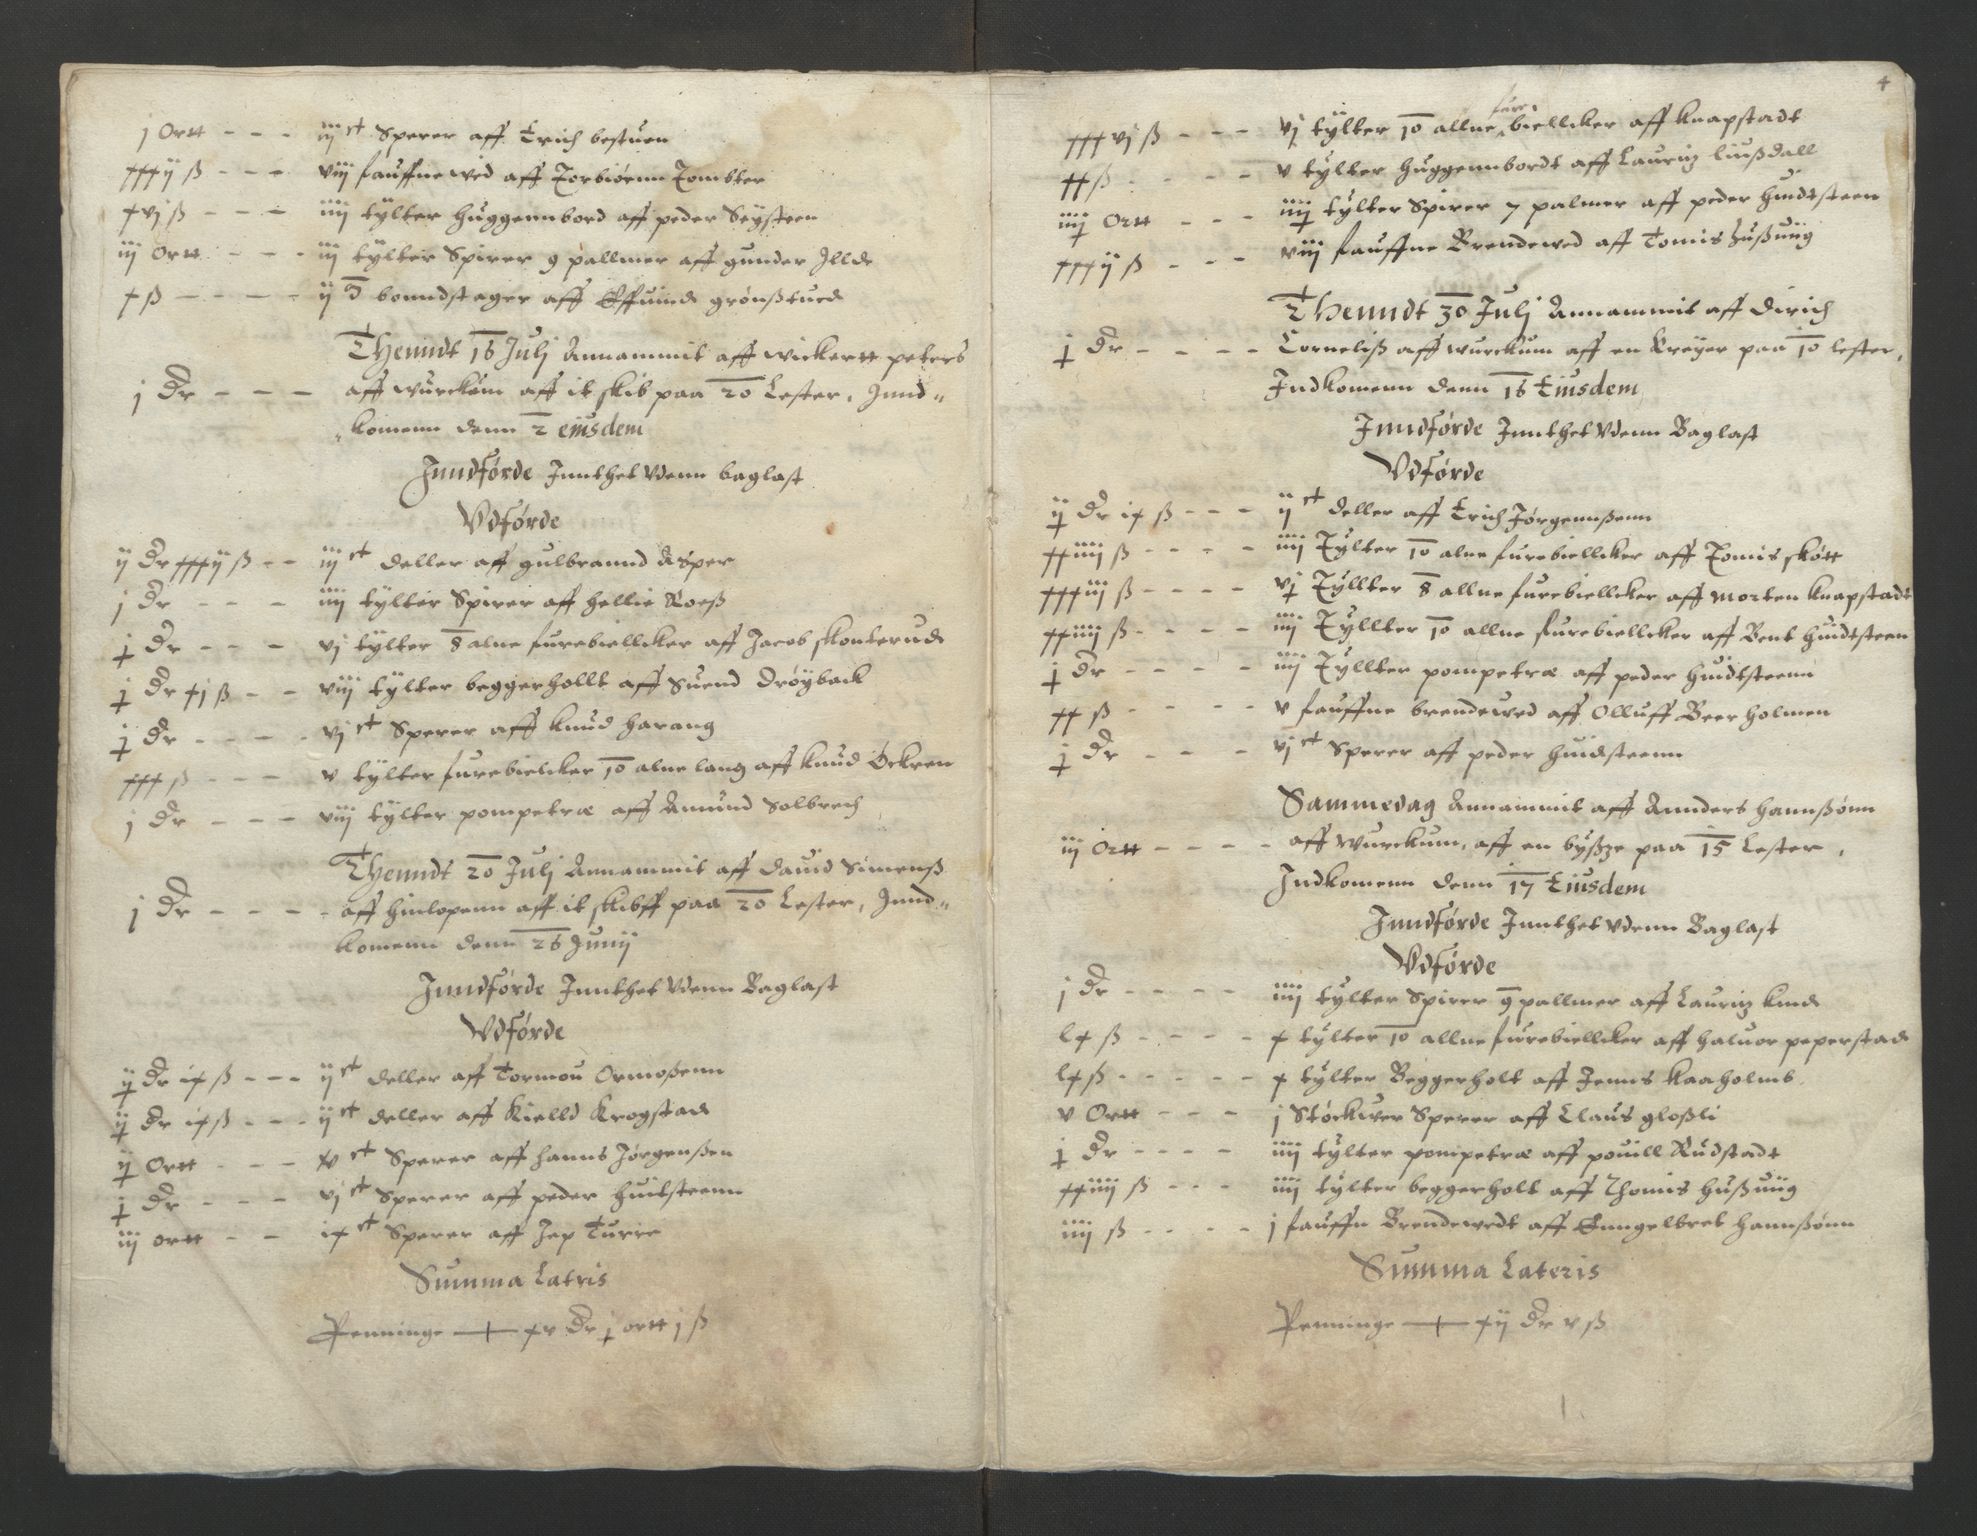 j Ortt - - - iij ct Sperer aff Erich bestuen
xxxij ß - - - viij fauffne wed aff Torbiørnn Tombter
xvj ß - - - iiij tylter huggennbord aff peder Seysteen
iij Ortt - - - iij tylter Spirer 9 pallmer aff gunder Illde
x ß - - - - ij bonndstager aff Effuind grønßtued
Thenndt 16 Julj Annammit aff wickertt peters
j Dr - - - aff wurckom aff it skib paa 20 Lester, Innd-
komenn denn 2 eiusdem
Inndførde Innthet Vdenn baglast
Vdførde
ij Dr xxxij ß - - iij ct deller aff gulbrannd Asper
j Dr - - - iiij tylter Spirer aff hellie Roeß
j Dr - - - vj tylter 8 alne furebiellcker aff Jacob skonterud
j Dr xj ß - - viij tylter beggerhollt aff Suend Drøyback
j Dr - - - - vj ct Sperer aff knud harang
xxx ß - - - v tylter furebielcker 10 alne lang aff knud Ockren
j Dr - - - viij tylter pompetræ aff Amund Solbrech
Thenndt 20 Julj Annammit aff dauid Simenß
j Dr - - - - aff hinlopenn aff it skibff paa 20 Lester, Innd-
komenn denn 26 Junij
Inndførde Innthet Vdenn Baglast
Vdførde
ij Dr ix ß - - - ij ct deller aff Tormou Ormoßenn
ij Dr ix ß - - - ij ct deller aff Kielld Krogstad
ij Ortt - - - xv ct Sperer aff hanns Jørgenßen
j Dr - - - vj ct Sperer aff peder huitsteenn
iij ortt - - ix ct Sperer aff Jep Turre
Summa Latris
Penninge xv Dr j ortt j ß
4
xxxvj ß - - - vj tylter 10 allne fure biellcker aff knapstadt
xx ß - - - - v tylter huggennbordt aff Lauritz liußdall
iiij Ortt - - - iiij tylter Spirer 7 palmer aff peder huidtsteen
xxxij ß - - - viij fauffne Brendewed aff Tomis hußuiig
Thenndt 30 Julj Annammit aff dirich
j Dr - - - - Corneliß aff wurckum aff en Kreyer paa 10 lester,
Indkomenn denn 16 Eiusdem
Inndførde Innthet Vdenn Baglast
Vdførde
ij Dr ix ß - - - ij ct deller aff Erich Jørgennßenn
xxiiij ß - - - - iiij Tylter 10 alne furebiellcker aff Tomis skøtt
xxxiij ß - - - - vj Tyllter 8 allne furebiellcker aff morten knapstadt
xxiiij ß - - - - iiij Tyllter 10 allne furebiellcker aff Bent huidtsteen
j Dr - - - - iiij Tyllter pompetræ aff peder huidtsteenn
xx ß - - - - v fauffne brendewed aff Olluff Beerholmen
j Dr - - - vj ct Sperer aff peder huidsteenn
Sammedag Annammit aff Annders hannßønn
iij Ortt - - - - aff wurckum, aff en byßze paa 15 Lester,
Indkomenn denn 17 Eiusdem
Inndførde Innthet Vdenn Baglast
Vdførde
j Dr - - - - iiij tylter Spirer 9 pallmer aff Lauritz kind
lx ß - - - - x tylter 10 allne furebiellcker aff haluor peperstad
lx ß - - - - x tylter Beggerholt aff Jenns kaaholmb
v Ortt - - - j Støckwer Sperer aff Claus gloßli
j Dr - - - - iiij tylter pompetræ aff pouill Rudstadt
xxiiij ß - - - iiij tylter beggerholt aff Thomis hußuiig
iiij ß - - - - j fauffn Brendewedt aff Enngelbret hannßønn
Summa Lateris
Penninge xij Dr v ß